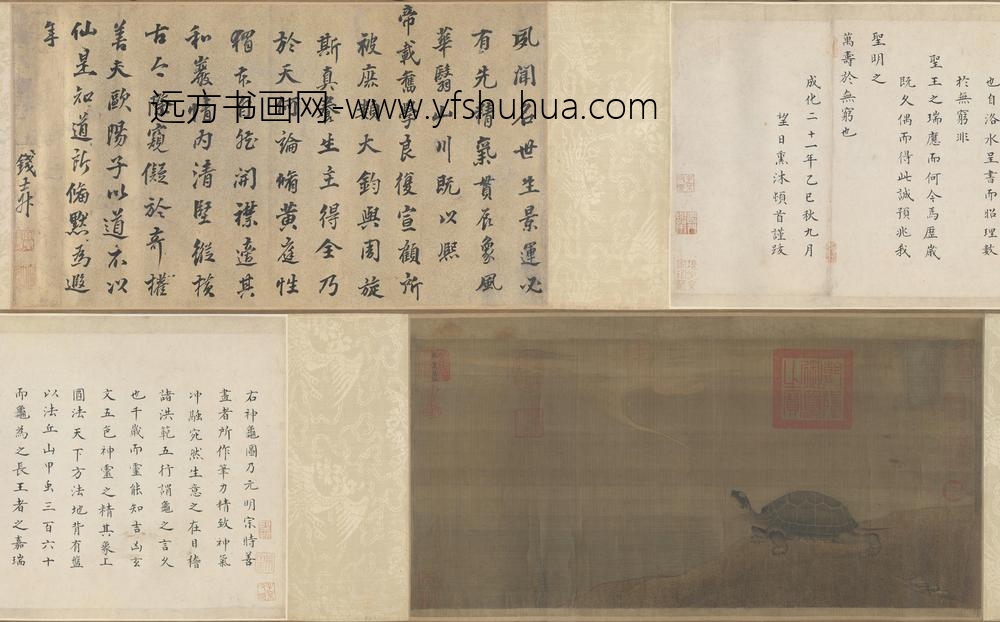 夙聞名世生景運必
有先精氣貫辰象風
華翳山川既以熙
帝載奮庸良復宣顧所
被庶類大鈞與周旋
斯真養生主得全乃
於天論脩黃庭性
猶開襟造其
和巖情內清堅縱横
古今窺儗於奇權
善夫歐陽子以道不以
仙是知道所脩默為遐
年
錢士升
远方书画网-www.yfshuhua.com
也自洛水呈書而昭理數
於無窮非
聖王之瑞應而何今焉歷歲
既久偶而得此誠預兆我
聖明之
萬壽於無窮也
成化二十一年乙巳秋九月
望日熏沐頓首謹跋
右神龜圖乃元明宗時善
畫者所作筆力精致神氣
冲融宛然生意之在目稽
諸洪範五行謂龜之言久
也千歲而靈能知吉凶玄
文五色神靈之精其象上
圓法天下方法地背有盤
以法丘山甲虫三百六十
而龜為之長王者之嘉瑞